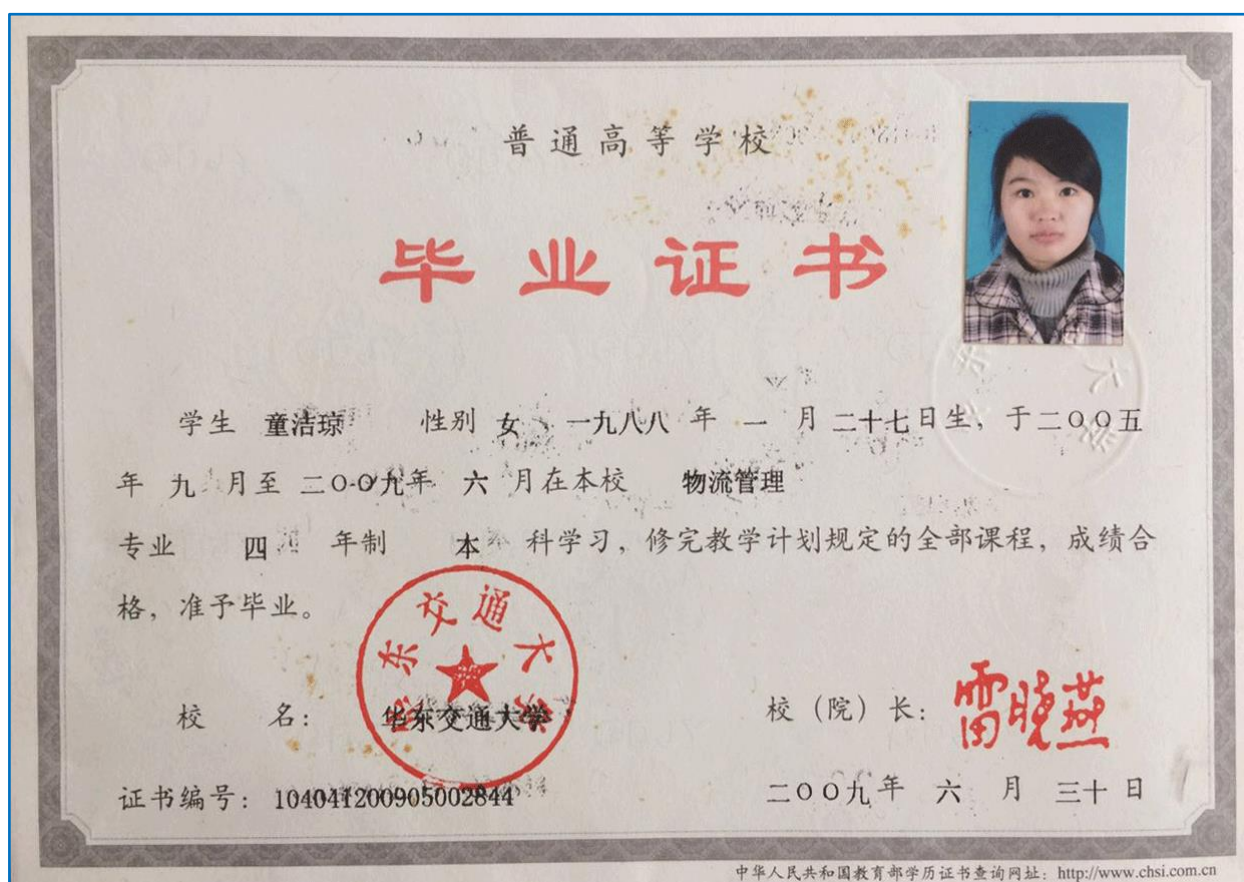 普通高等学校
毕业证书
学生 童洁琼 性别 女 、一九八八 年 一 月 二十七日生，于二〇〇五
年 九 月至 二〇〇九年 六 月在本校 物流管理
专业 四 年制 本 科学习，修完教学计划规定的全部课程，成绩合
格，准予毕业。
华东交通大学
校 名： 华东交通大学
校（院）长： 雷晓燕
证书编号： 104041200905002844
二〇〇九年 六 月 三十 日
中华人民共和国教育部学历证书查询网址：http://www.chsi.com.cn